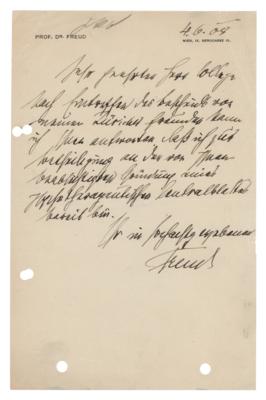 PROF. DR. FREUD
4.6.09
WIEN, IX. BERGGASSE 19.
Sehr geehrter Herr College
Nach Eintreffen des Bescheids von
meinen Züricher Freunden kann
ich Ihnen antworten, daß ich zur
Betheiligung an der von Ihnen
beabsichtigten Gründung eines
psychotherapeutischen Centralblattes
bereit bin.
Ihr in Hochachtg ergebener
Freud